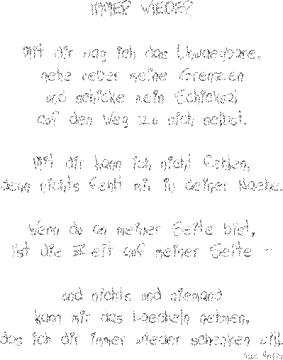 IMMER WIEDER
Mit dir wag ich das Unwaegbare,
gehe ueber meine Grenzen
und schicke mein Schicksal
auf den Weg zu sich selbst.
Mit dir kann ich nicht fehlen,
denn nichts fehlt mir in deiner Naehe.
Wenn du an meiner Seite bist,
ist die Zeit auf meiner Seite -
und nichts und niemand
kann mir das Laecheln nehmen,
das ich dir immer wieder schenken will.